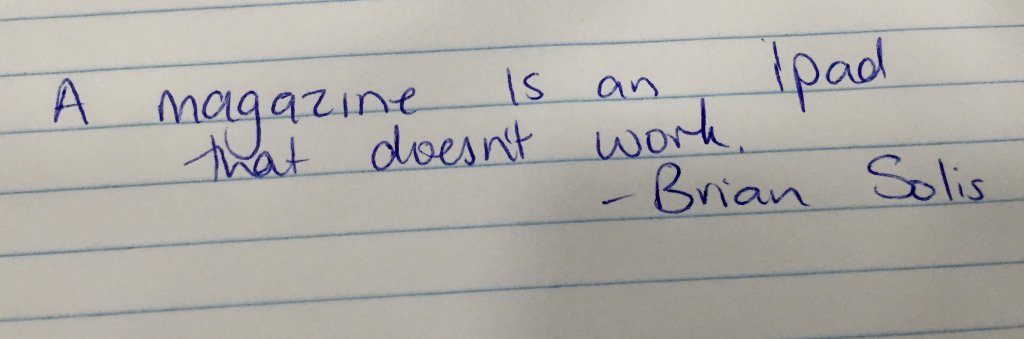 A magazine is an Ipad
that doesn't work.
- Brian Solis